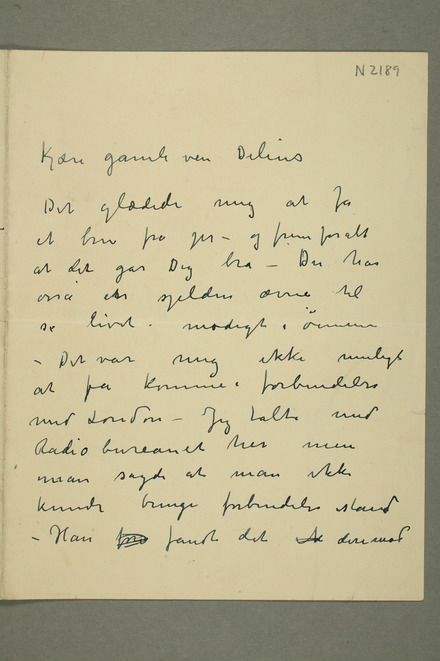 N 2189
Kjære gamle ven Delius
Det glædede mig at få
et brev fra jer – og fremforalt
at det går Dig bra – Du har
også en sjelden ævne til
se livet modigt i øinene
– Det var mig ikke muligt
at få komme i forbindelse
med London – Jeg talte med
Radiobureauet her men
man sagde at man ikke
kunde bringe forbindelse istand
– Han fandt det derimod